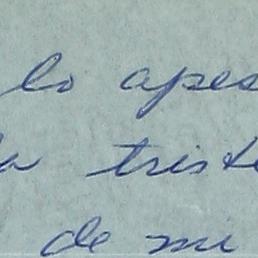 lo apes
la triste
de mi